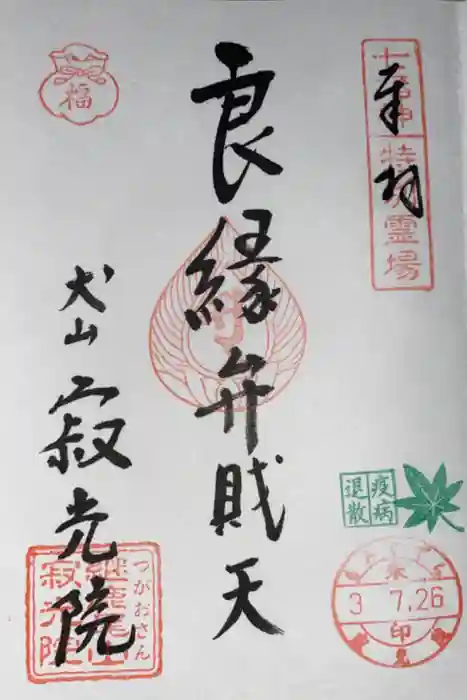 奉拝
特別霊場
良縁弁財天
福
犬山
寂光院
つがおさん
継鹿尾山
寂光院
疫病
退散
3 7.26
印